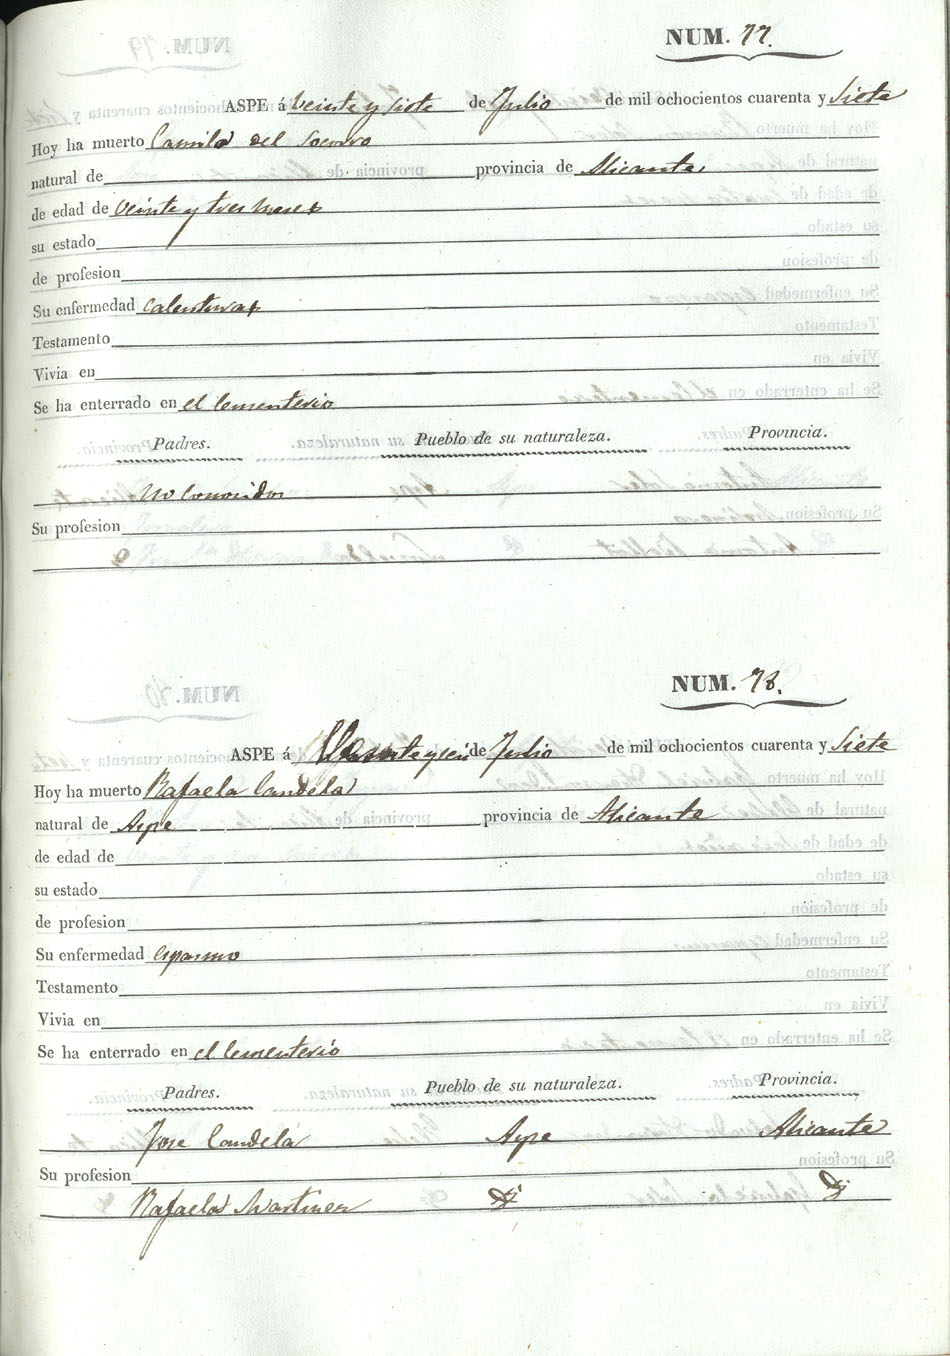 NUM. 77.
ASPE á Veinte y siete de Julio de mil ochocientos cuarenta y Siete
Hoy ha muerto Camila del Socorro
natural de provincia de Alicante
de edad de Veinte y tres meses
su estado
de profesion
Su enfermedad Calenturas
Testamento
Vivia en
Se ha enterrado en el Cementerio
Padres. Pueblo de su naturaleza. Provincia.
No Conocidos
Su profesion
NUM. 78.
ASPE á de Julio de mil ochocientos cuarenta y Siete
Hoy ha muerto Rafaela Candela
natural de Aspe provincia de Alicante
de edad de
su estado
de profesion
Su enfermedad Espasmo
Testamento
Vivia en
Se ha enterrado en el Cementerio
Padres. Pueblo de su naturaleza. Provincia.
Jose Candela Aspe Alicante
Su profesion
Rafaela Martinez